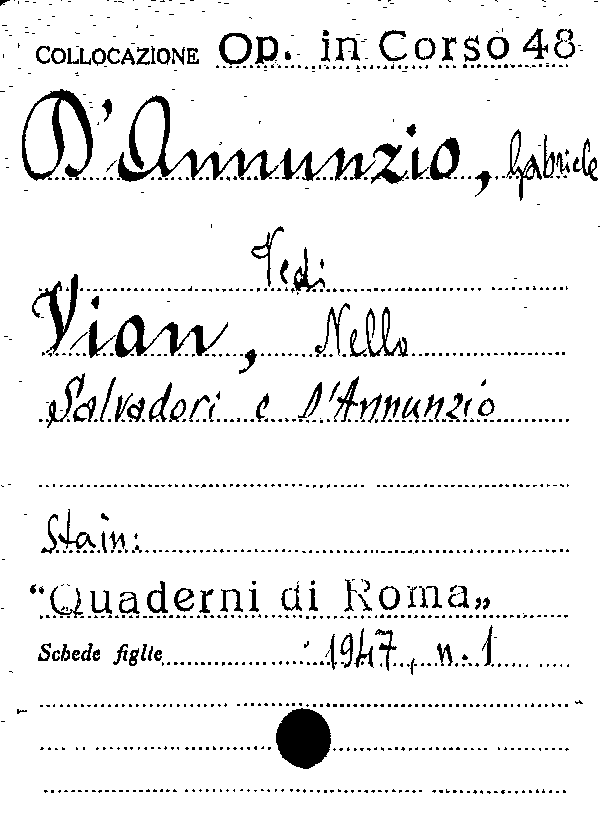 COLLOCAZIONE Op. in Corso 48
D'Annunzio, Gabriele
Vedi
Vian, Nello
Salvadori e D'Annunzio
Sta in:
"Quaderni di Roma„
Schede figlie 1947, n. 1